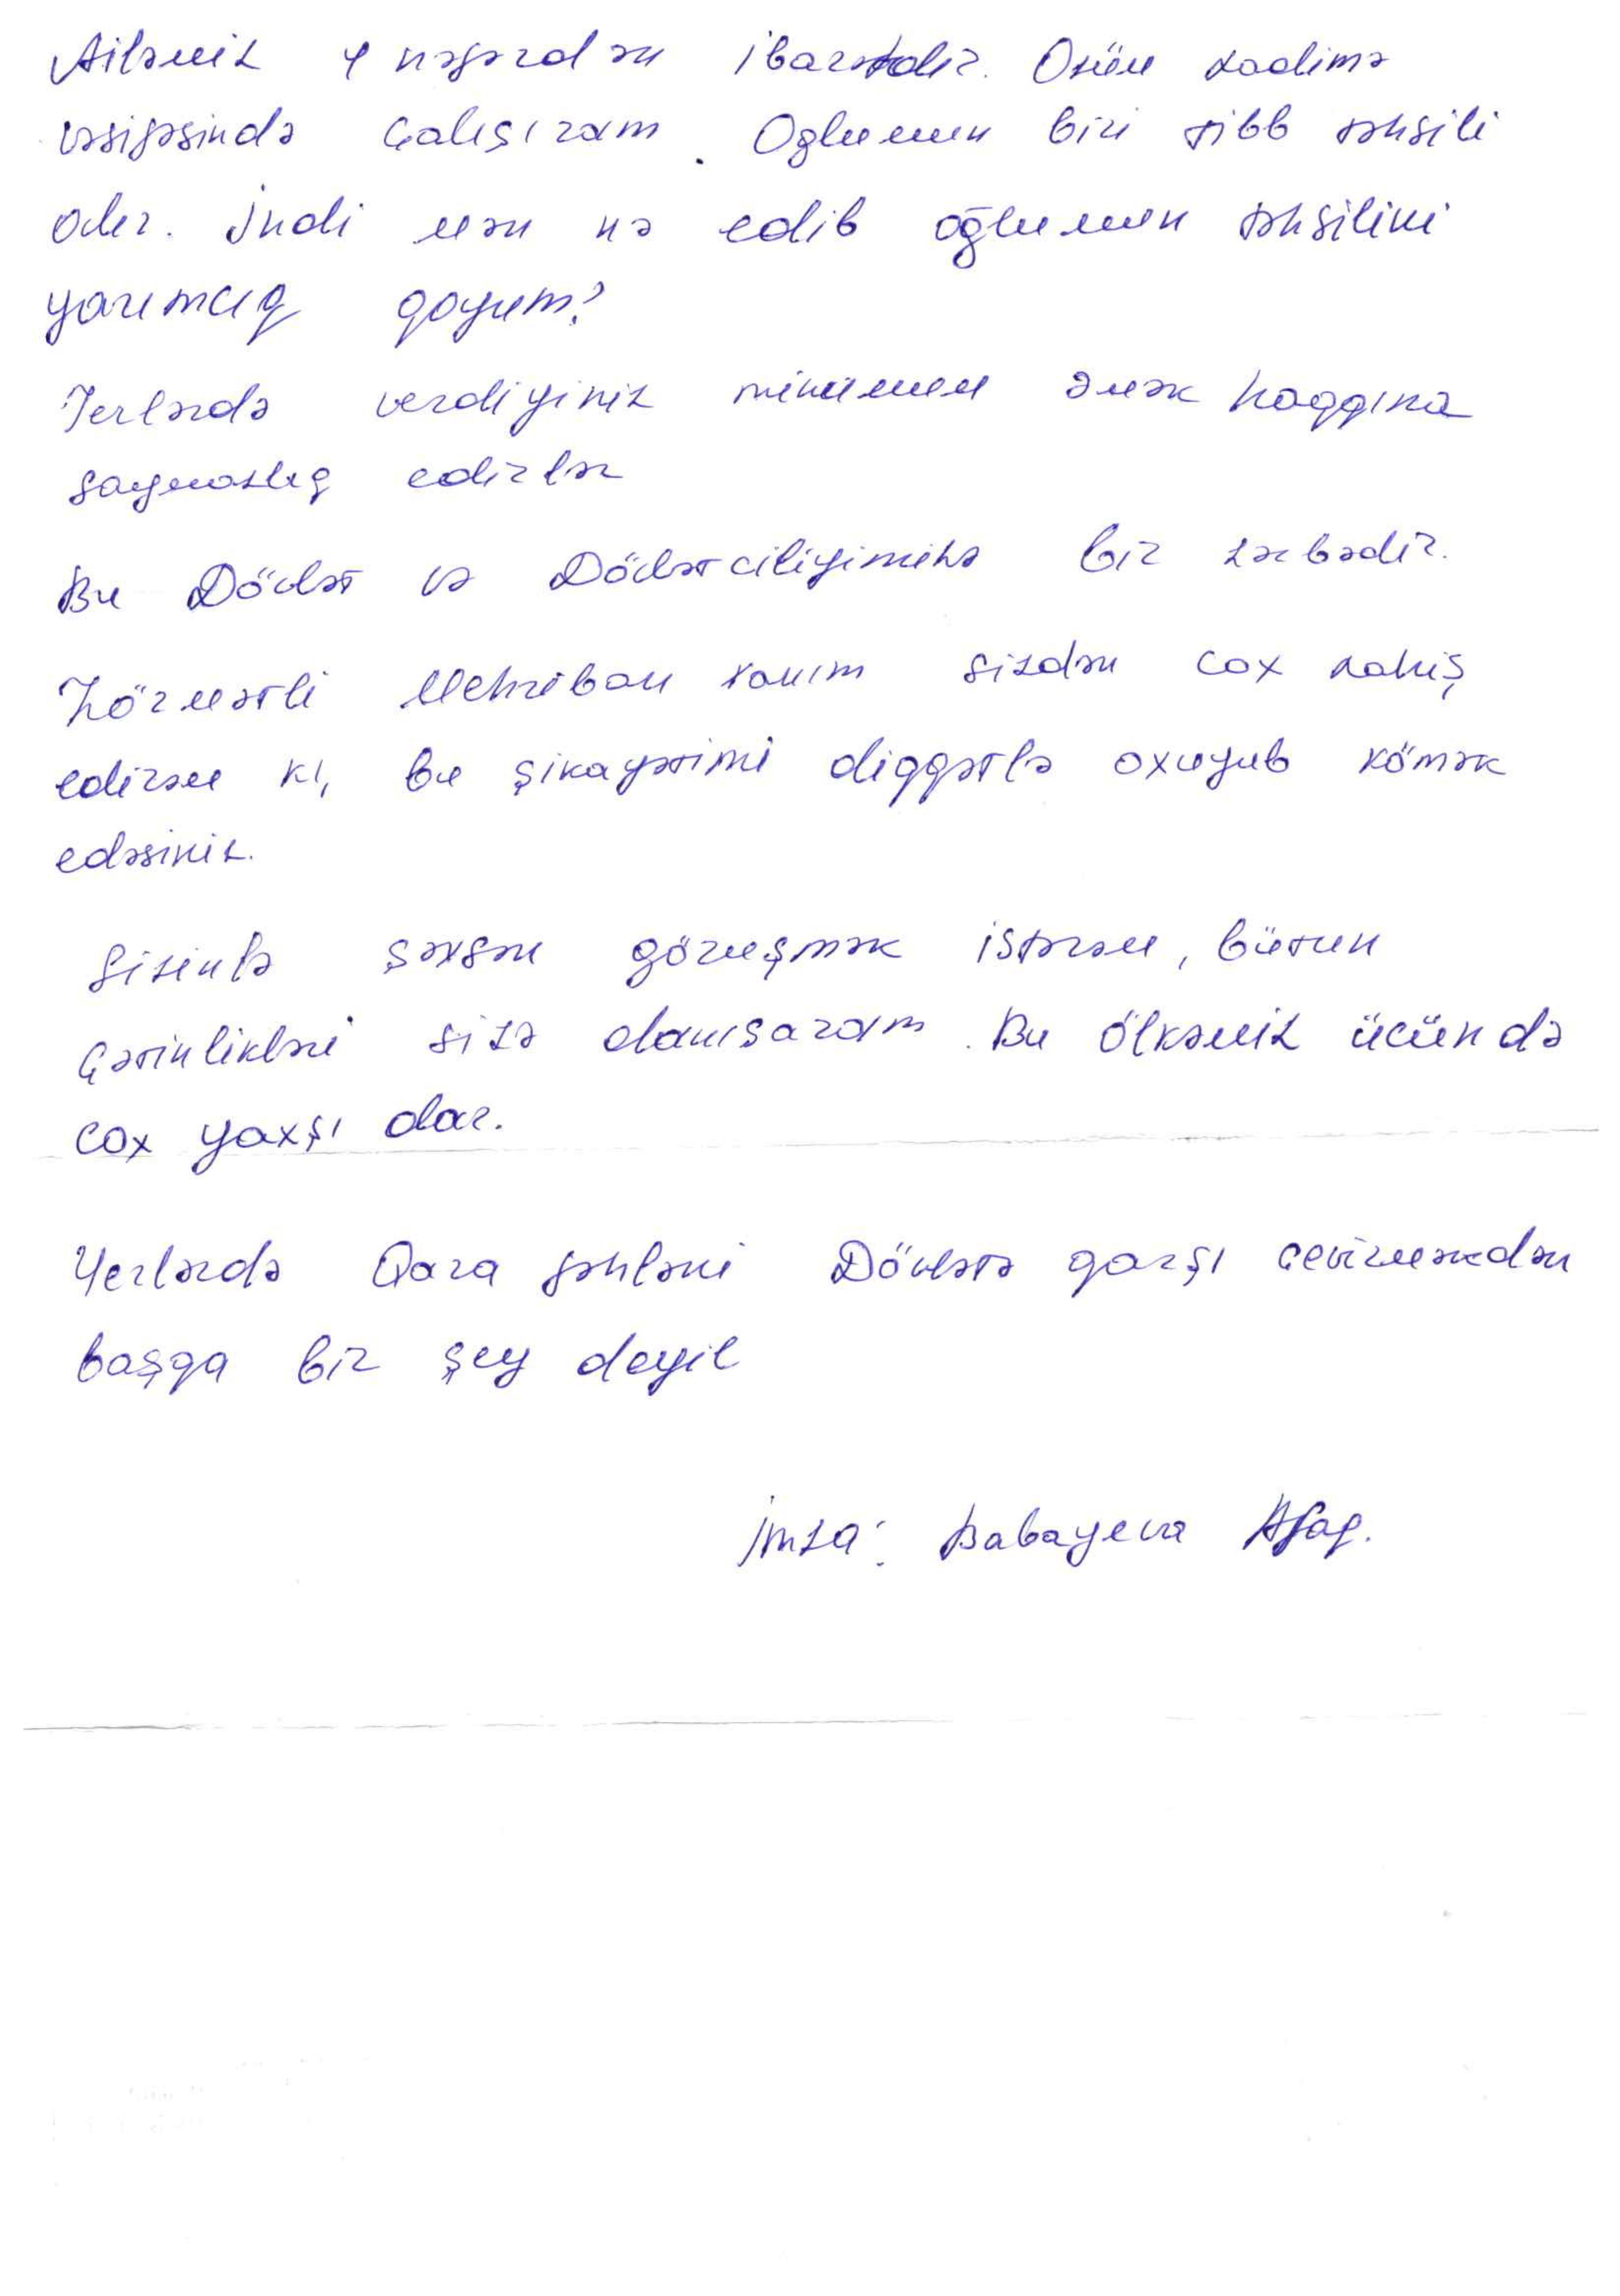 Ailəmiz 4 nəfərdən ibarətdir. Özüm xadimə
vəsifəsində çalışıram. Oglumun biri tibb təhsili
alır. İndi mən nə edib oğlumun təhsilini
yarımcıq qoyum?
Yerlərdə verdiyiniz minimum əmək haqqına
saymazlıq edirlər
Bu Dövlət və Dövlətciliyimizə bir zərbədir.
Hörmətli Mehriban xanım sizdən cox xahiş
edirəm ki, bu şikayətimi diqqətlə oxuyub kömək
edəsiniz.
Sizinlə şəxsən görüşmək istərəm, bütün
çətinlikləri sizə danısaram. Bu ölkəmiz ücün də
cox yaxşı olar.
Yerlərdə Qara fəhləni Dövlətə qarşı çevirməkdən
başqa bir şey deyil
İmza: Babayeva Afaq.